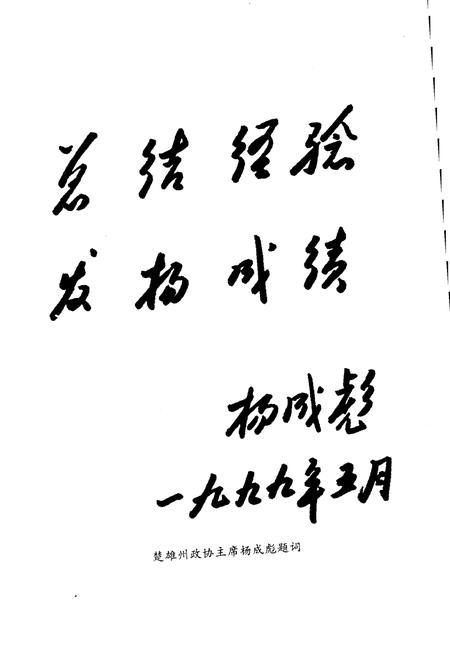 总结经验
发扬成绩
杨成彪
一九九九年五月
楚雄州政协主席杨成彪题词